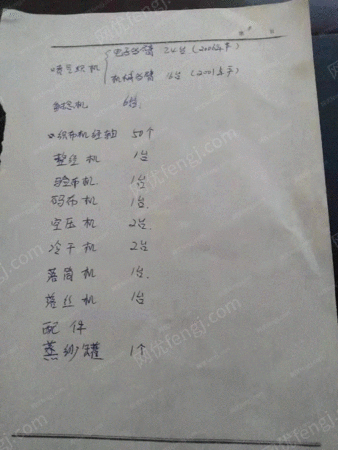 电子多臂 24台(2001年产)
喷气织机
机械多臂 12台(2001年产)
6台
织布机经轴 50个
整经机 1台
验布机 1台
码布机 1台
空压机 2台
冷干机 2台
落筒机 1台
落丝机 1台
配件
蒸纱罐 1个